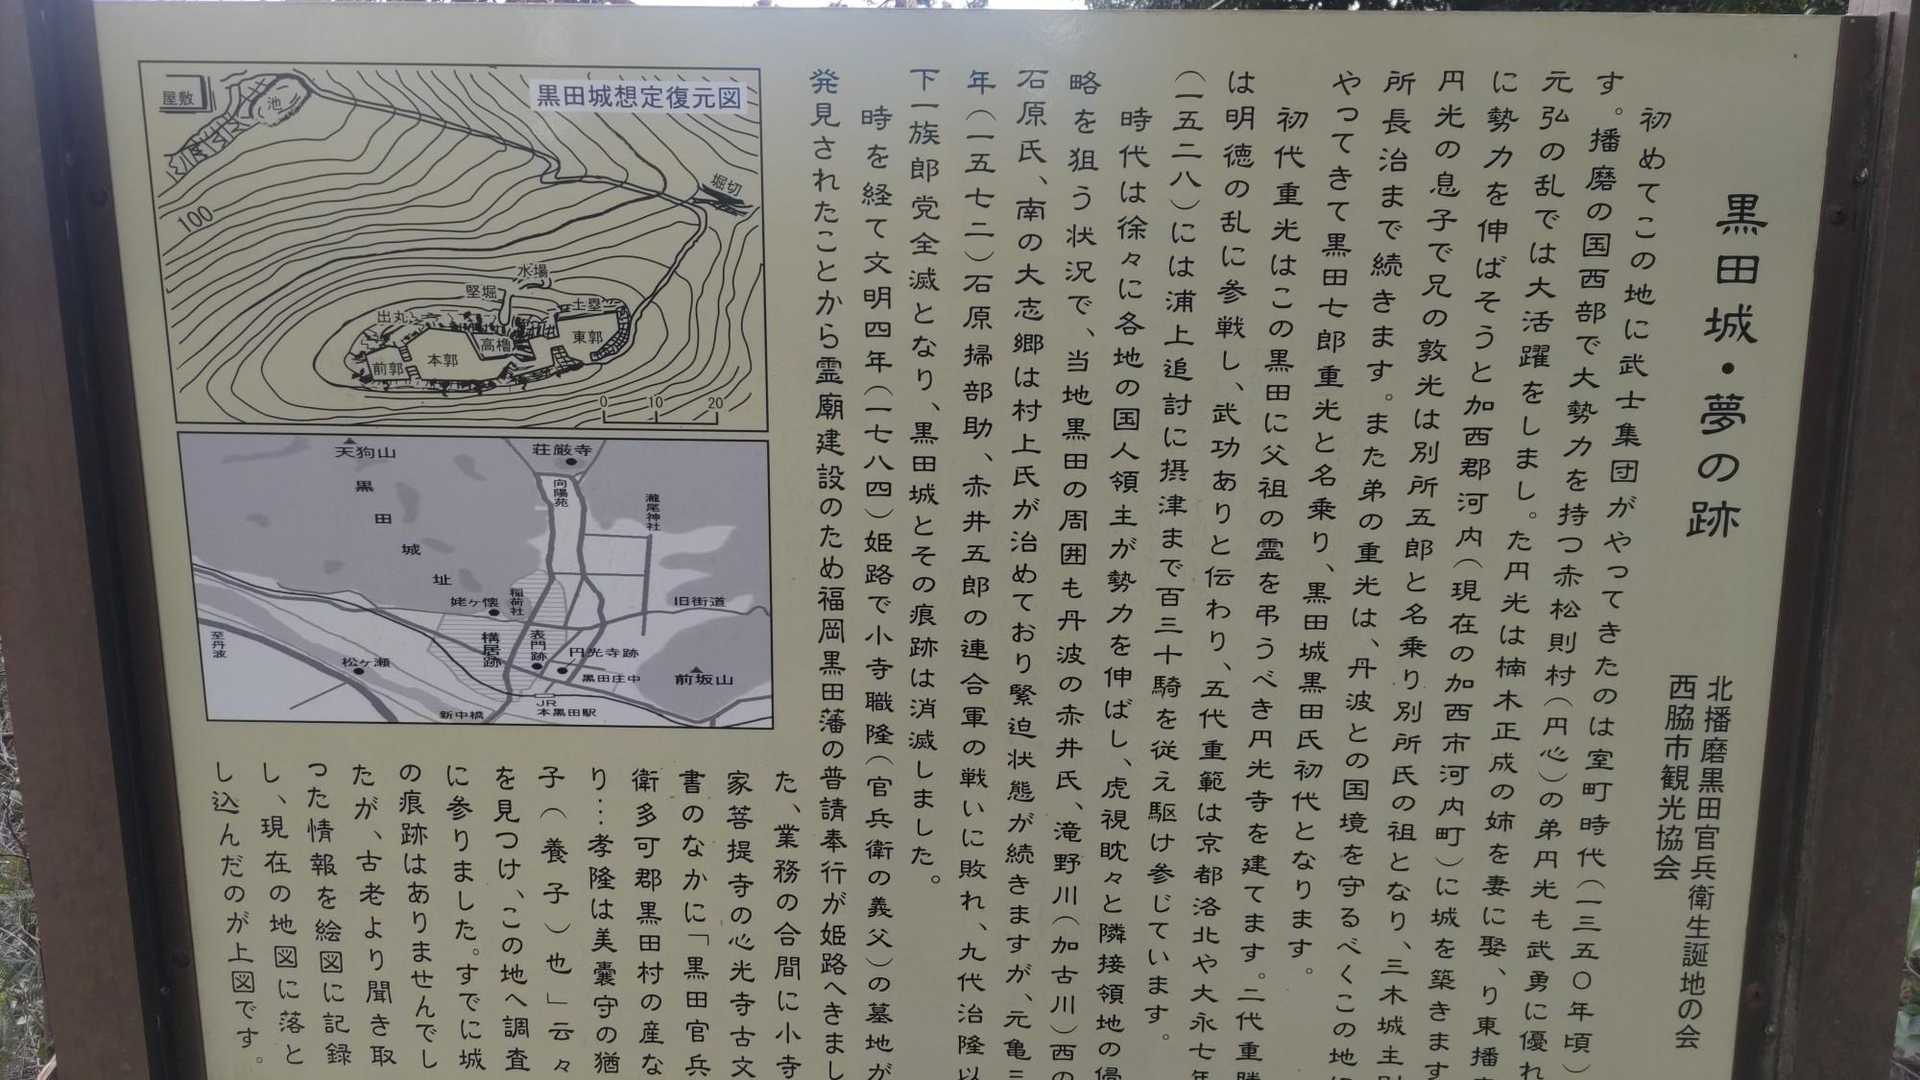 黒田城・夢の跡
北播磨黒田官兵衛生誕地の会
西脇市観光協会
初めてこの地に武士集団がやってきたのは室町時代（一三五〇年頃）
す。播磨の国西部で大勢力を持つ赤松則村（円心）の弟円光も武勇に優れ
元弘の乱では大活躍をしまし。た円光は楠木正成の姉を妻に娶、り東播
に勢力を伸ばそうと加西郡河内（現在の加西市河内町）に城を築きます
円光の息子で兄の敦光は別所五郎と名乗り別所氏の祖となり、三木城主
所長治まで続きます。また弟の重光は、丹波との国境を守るべくこの地
やってきて黒田七郎重光と名乗り、黒田城黒田氏初代となります。
初代重光はこの黒田に父祖の霊を弔うべき円光寺を建てます。二代重勝
は明徳の乱に参戦し、武功ありと伝わり、五代重範は京都洛北や大永七年
（一五二八）には浦上追討に摂津まで百三十騎を従え駆け参じています。
時代は徐々に各地の国人領主が勢力を伸ばし、虎視眈々と隣接領地の侵
略を狙う状況で、当地黒田の周囲も丹波の赤井氏、滝野川（加古川）西の
石原氏、南の大志郷は村上氏が治めており緊迫状態が続きますが、元亀三
年（一五七二）石原掃部助、赤井五郎の連合軍の戦いに敗れ、九代治隆以
下一族郎党全滅となり、黒田城とその痕跡は消滅しました。
時を経て文明四年（一七八四）姫路で小寺職隆（官兵衛の義父）の墓地が
発見されたことから霊廟建設のため福岡黒田藩の普請奉行が姫路へきまし
た、業務の合間に小寺
家菩提寺の心光寺古文
書のなかに「黒田官兵
衛多可郡黒田村の産な
り…孝隆は美嚢守の猶
子（養子）也」云々
を見つけ、この地へ調査
に参りました。すでに城
の痕跡はありませんでし
たが、古老より聞き取
った情報を絵図に記録
し、現在の地図に落と
し込んだのが上図です。
黒田城想定復元図
屋敷
池
堀切
100
水場
竪堀
土塁
出丸
高櫓
東郭
本郭
前郭
0 10 20
天狗山
荘厳寺
向陽苑
瀧尾神社
黒田城址
姥ヶ懐
稲荷社
旧街道
至丹波
構居跡
表門跡
円光寺跡
松ヶ瀬
黒田庄中
前坂山
JR
本黒田駅
新中橋